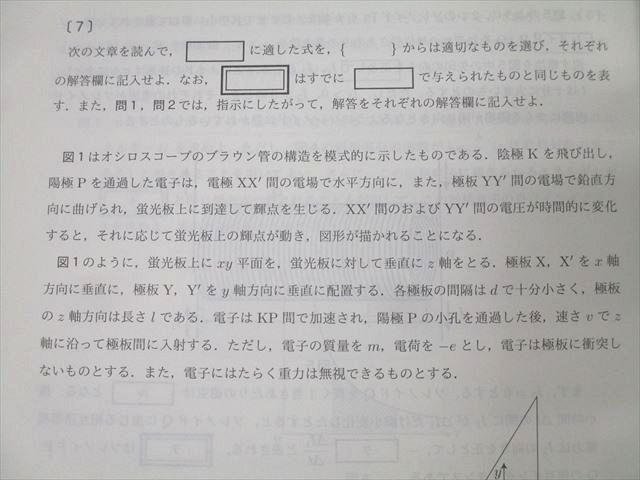 〔7〕
次の文章を読んで，　　　に適した式を，{　　　}からは適切なものを選び，それぞれ
の解答欄に記入せよ．なお，　　　はすでに　　　で与えられたものと同じものを表
す．また，問1，問2では，指示にしたがって，解答をそれぞれの解答欄に記入せよ．
図1はオシロスコープのブラウン管の構造を模式的に示したものである．陰極Kを飛び出し，
陽極Pを通過した電子は，電極XX′間の電場で水平方向に，また，極板YY′間の電場で鉛直方
向に曲げられ，蛍光板上に到達して輝点を生じる．XX′間のおよびYY′間の電圧が時間的に変化
すると，それに応じて蛍光板上の輝点が動き，図形が描かれることになる．
図1のように，蛍光板上にxy平面を，蛍光板に対して垂直にz軸をとる．極板X，X′をx軸
方向に垂直に，極板Y，Y′をy軸方向に垂直に配置する．各極板の間隔はdで十分小さく，極板
のz軸方向は長さlである．電子はKP間で加速され，陽極Pの小孔を通過した後，速さvでz
軸に沿って極板間に入射する．ただし，電子の質量をm，電荷を−eとし，電子は極板に衝突し
ないものとする．また，電子にはたらく重力は無視できるものとする．
y